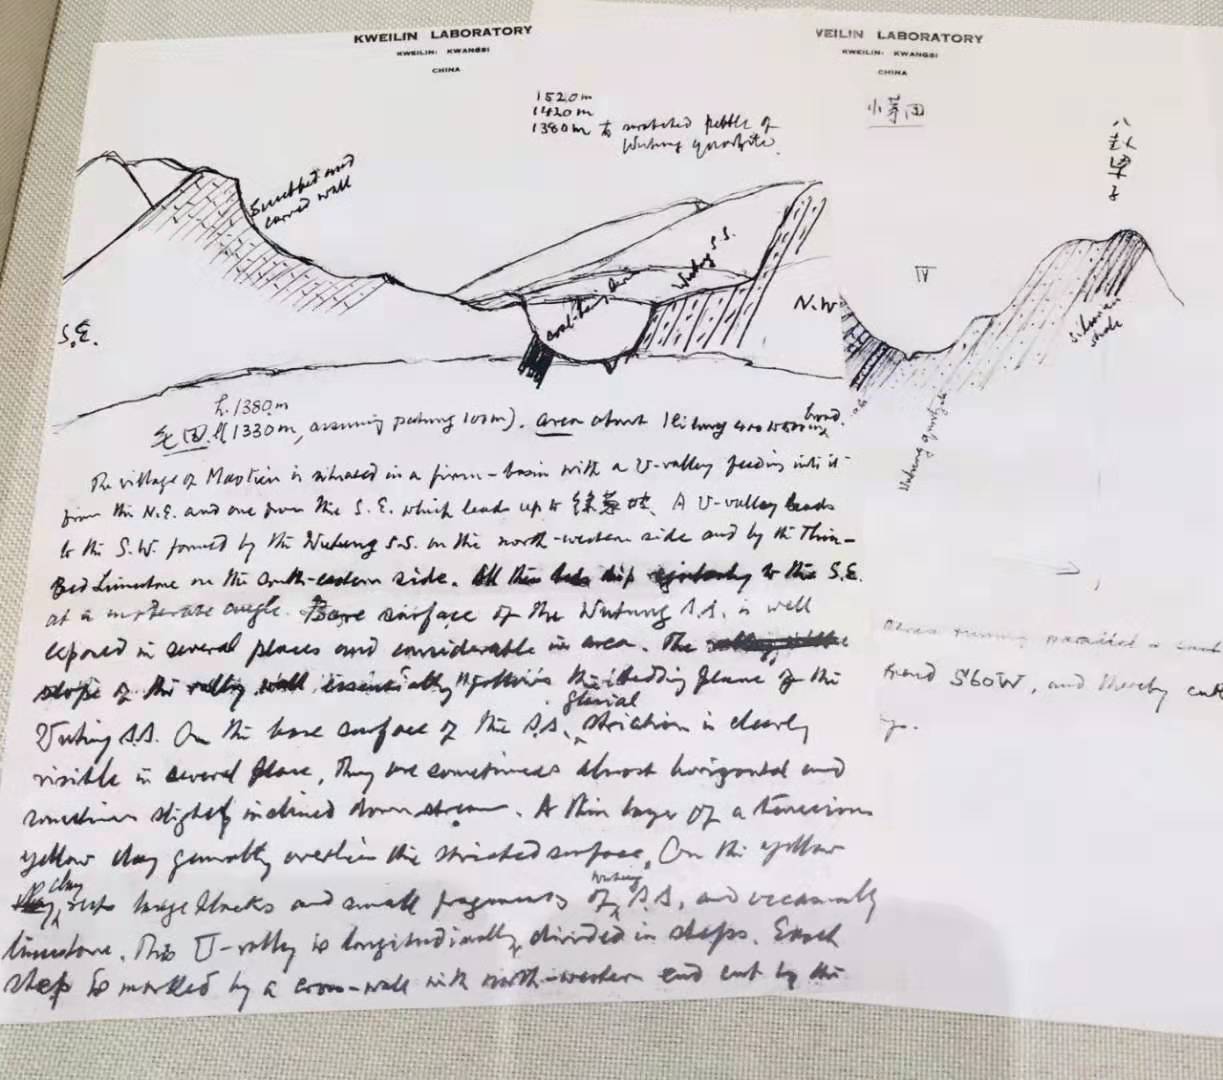 KWEILIN LABORATORY
KWEILIN: KWANGSI
CHINA
1520m
1420m
1380m to striated pebble of
Wutung quartzite.
Scratched and
carved wall
Wutung S.S.
S.E.
N.W
h. 1380m
(1330m, assuming patung 100m). area about 1 kilom broad.
The village of Maotien is situated in a firn-basin with a U-valley feeding into it
from the N.E. and one from the S.E. which leads up to A U-valley leads
to the S.W. formed by the Wutung S.S. on the north-western side and by the Thin-
Bed Limestone on the south-eastern side. All these beds dip to the S.E.
at a moderate angle. Bare surface of the Wutung S.S. is well
exposed in several places and considerable in area. The
slope of the valley wall essentially follows the bedding plane of the
Wutung S.S. On the bare surface of the S.S. glacial striation is clearly
visible in several place, They are sometimes almost horizontal and
sometimes slightly inclined down stream. A thin layer of a tenacious
yellow clay generally overlies the striated surface. On the yellow
clay rests large blocks and small fragments of Wutung S.S, and occasionally
limestone. This U-valley is longitudinally divided in steps. Each
step is marked by a cross-wall with north-western end cut by the
VEILIN LABORATORY
KWEILIN: KWANGSI
CHINA
小茅田
八卦梁子
IV
Silurian
shale
Wutung quartzite
running parallel
trend S60W, and thereby cut